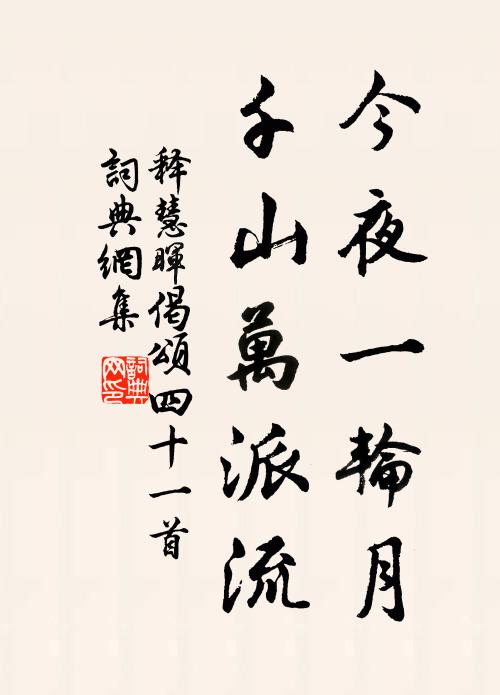 今夜一輪月
千山萬派流
释慧暉偈頌四十一首
詞典網集
詞典网印